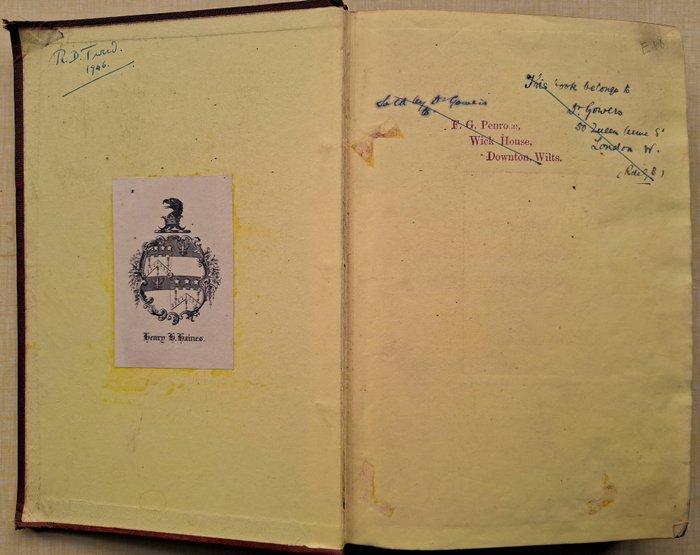 R. D. Tweed.
1946.
Henry H. Haines.
E48
Sold by Dr Gowers
to
F. G. Penrose,
Wick House,
Downton, Wilts.
This book belongs to
Dr Gowers
50 Queen Anne St
London W.